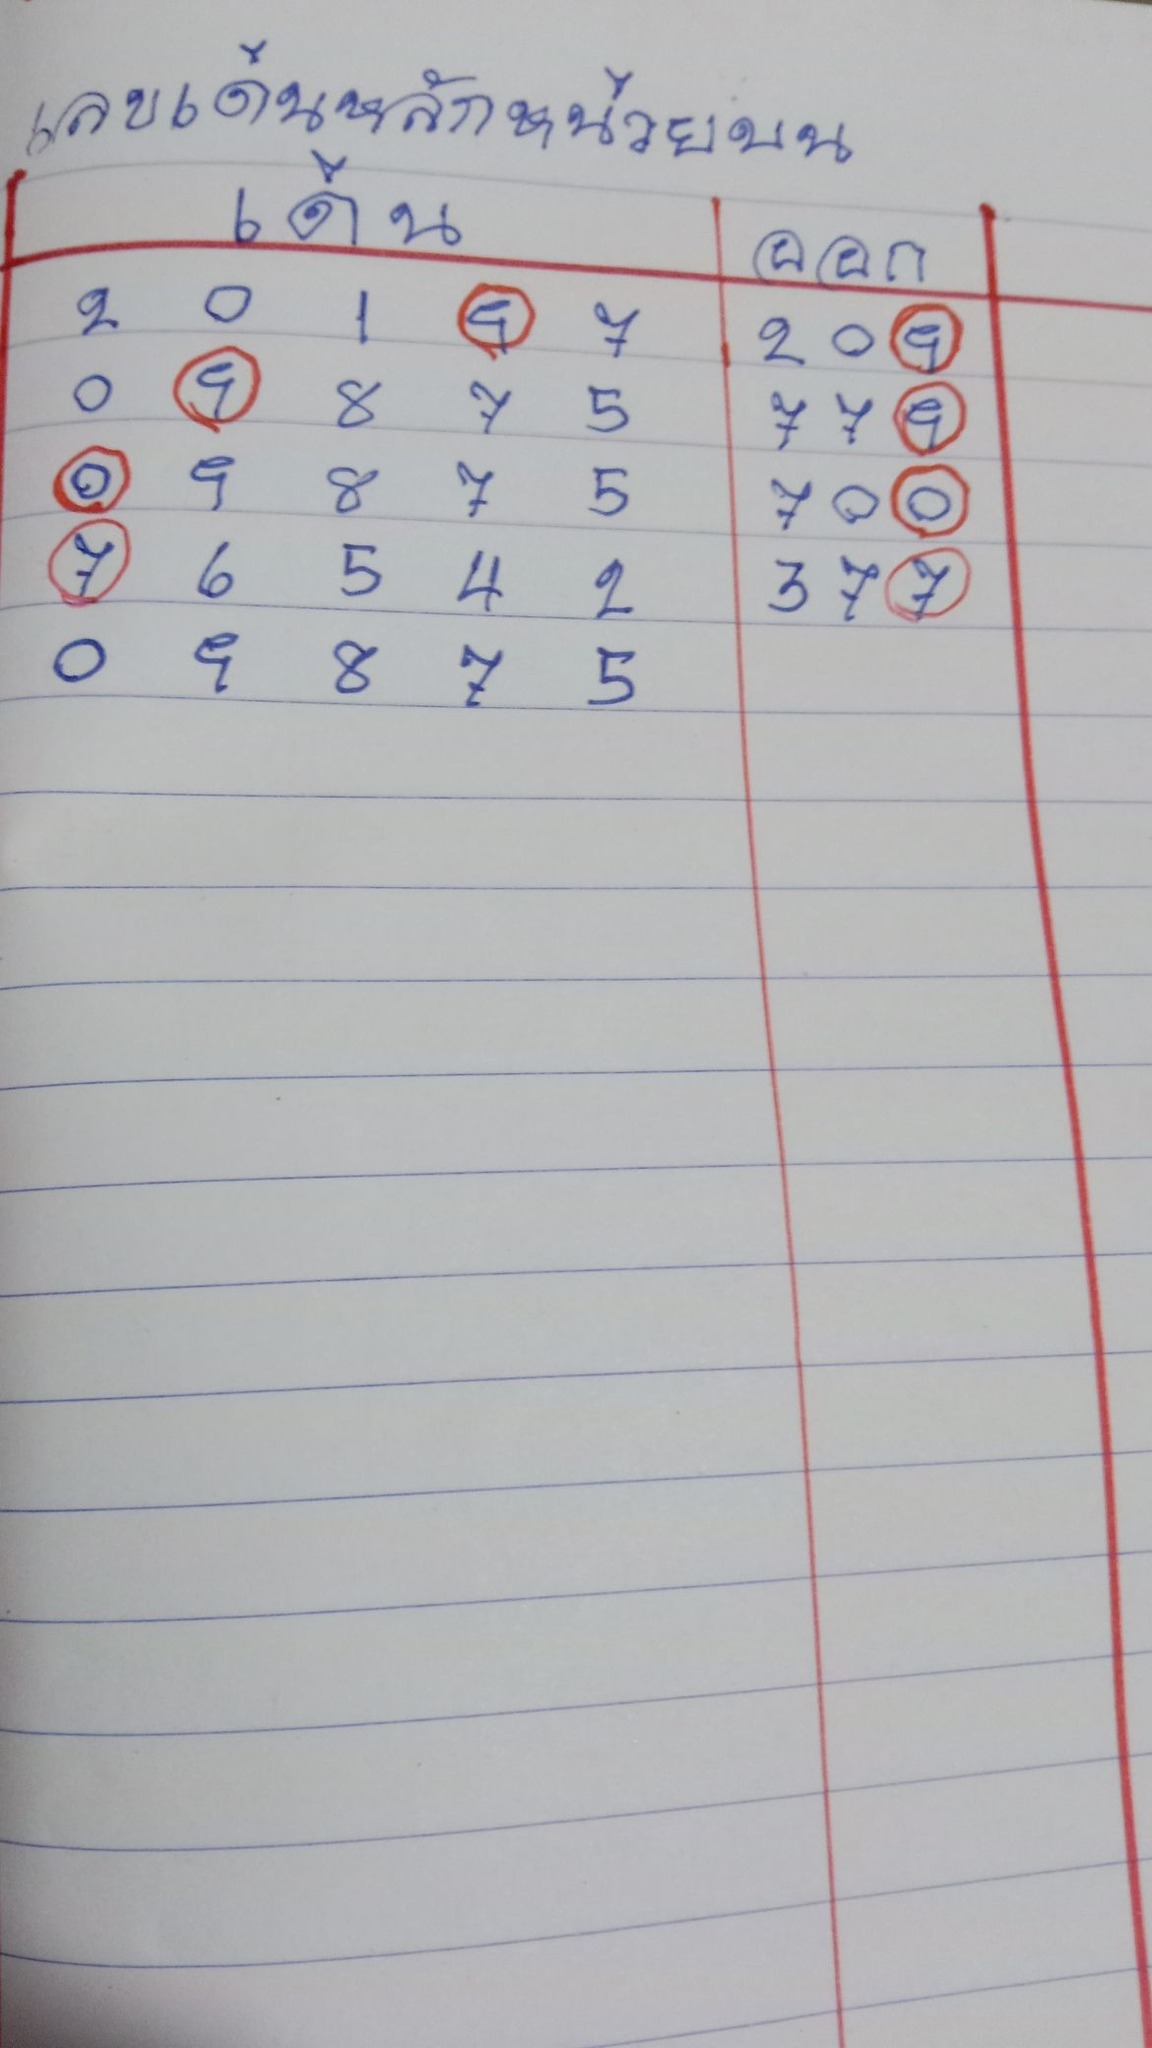 เลขเด่นหลักหน่วยบน
เด่น ออก
2 0 1 9 7 209
0 9 8 7 5 779
0 9 8 7 5 700
7 6 5 4 2 377
0 9 8 7 5